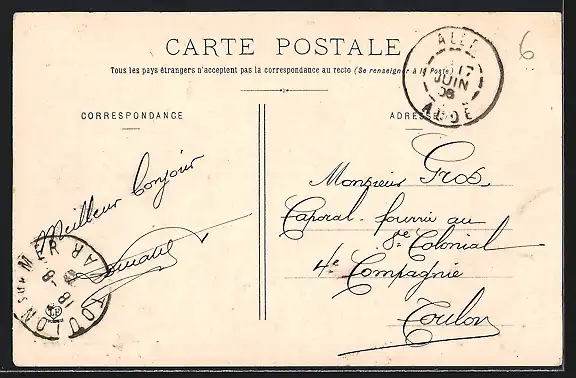 CARTE POSTALE
Tous les pays étrangers n'acceptent pas la correspondance au recto (Se renseigner à la Poste)
CORRESPONDANCE
ADRESSE
17
JUIN
06
AUDE
6
Meilleur bonjour
Monsieur Gros,
Caporal-fourrier au
8e Colonial
4e Compagnie
Toulon
TOULON SUR MER
VAR
18 - 6